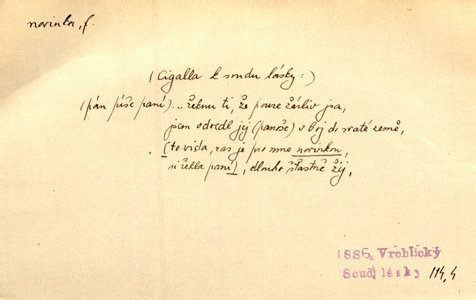 novinka, f.
(Cigalla k soudu lásky:)
(pán píše paní)... řeknu ti, že pouze žárliv jsa,
jsem odvedl jej (panoše) v boj do svaté země,
(to víš, zas je pro mne novinkou,
si řekla paní), dlouho šťastně žij,
1886, Vrchlický
Soud lásky 114,4